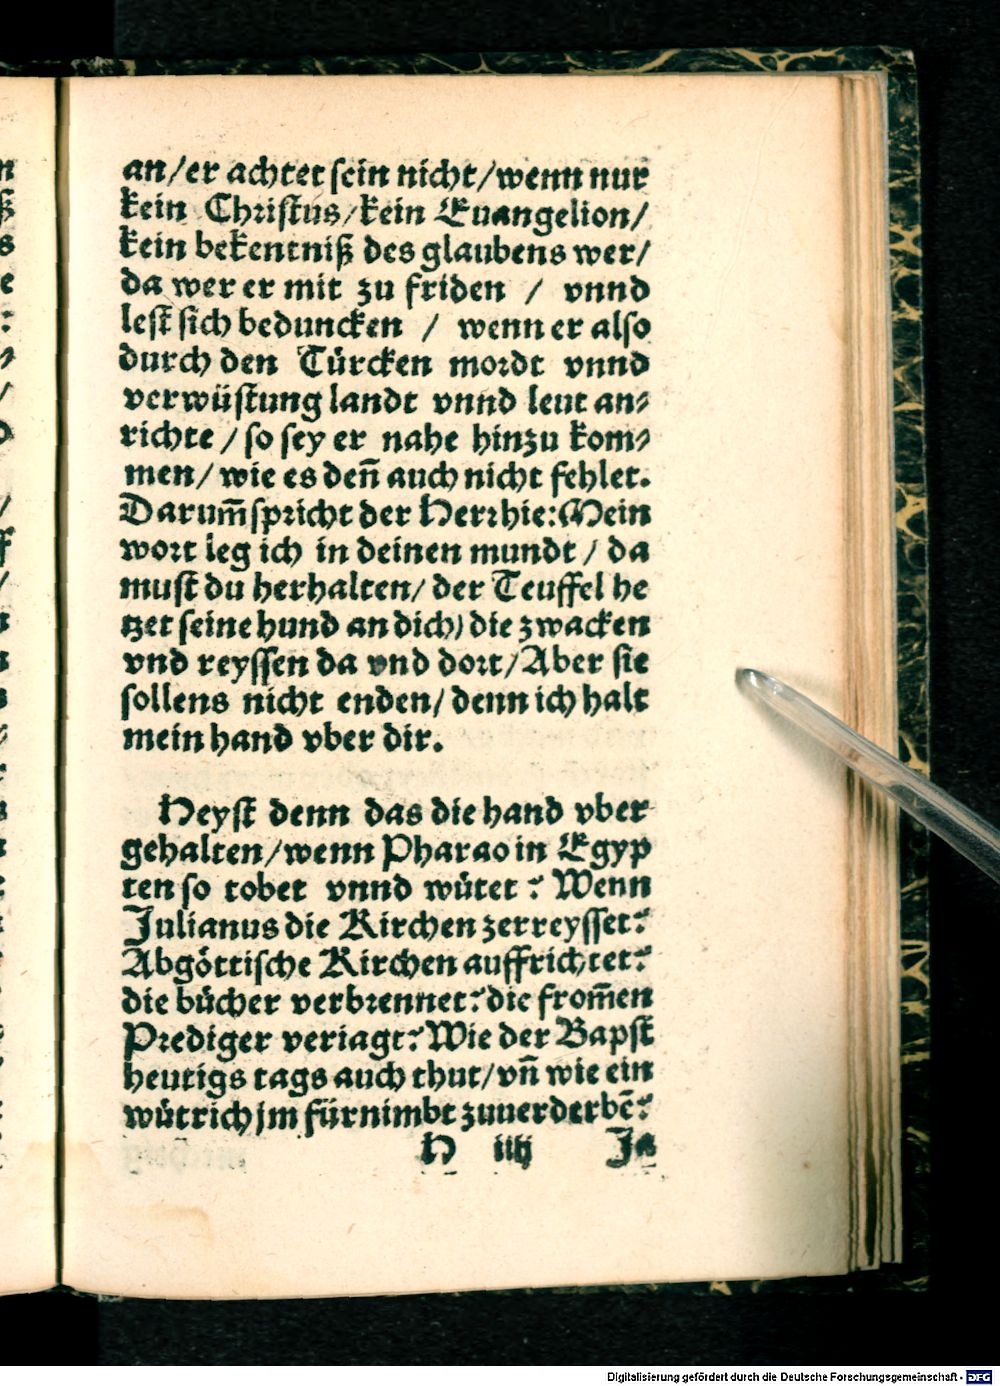 an/er achtet sein nicht/wenn nur
kein Christus/kein Euangelion/
kein bekentniß des glaubens wer/
da wer er mit zu friden / vnnd
lest sich beduncken / wenn er also
durch den Türcken mordt vnnd
verwüstung landt vnnd leut an⸗
richte / so sey er nahe hinzu kom⸗
men/ wie es deñ auch nicht fehlet.
Darum̃ spricht der Herr hie: Mein
wort leg ich in deinen mundt / da
must du herhalten/ der Teuffel he
tzet seine hund an dich/ die zwacken
vnd reyssen da vnd dort/Aber sie
sollens nicht enden/ denn ich halt
mein hand vber dir.
Heyst denn das die hand vber
gehalten/wenn Pharao in Egyp
ten so tobet vnnd wütet? Wenn
Julianus die Kirchen zerreysset?
Abgöttische Kirchen auffrichtet?
die bücher verbrennet? die from̃en
Prediger veriagt? Wie der Bapst
heutigs tags auch thut/ vñ wie ein
wütrich jm fürnimbt zuuerderbẽ?
H iiij Ja
Digitalisierung gefördert durch die Deutsche Forschungsgemeinschaft - DFG